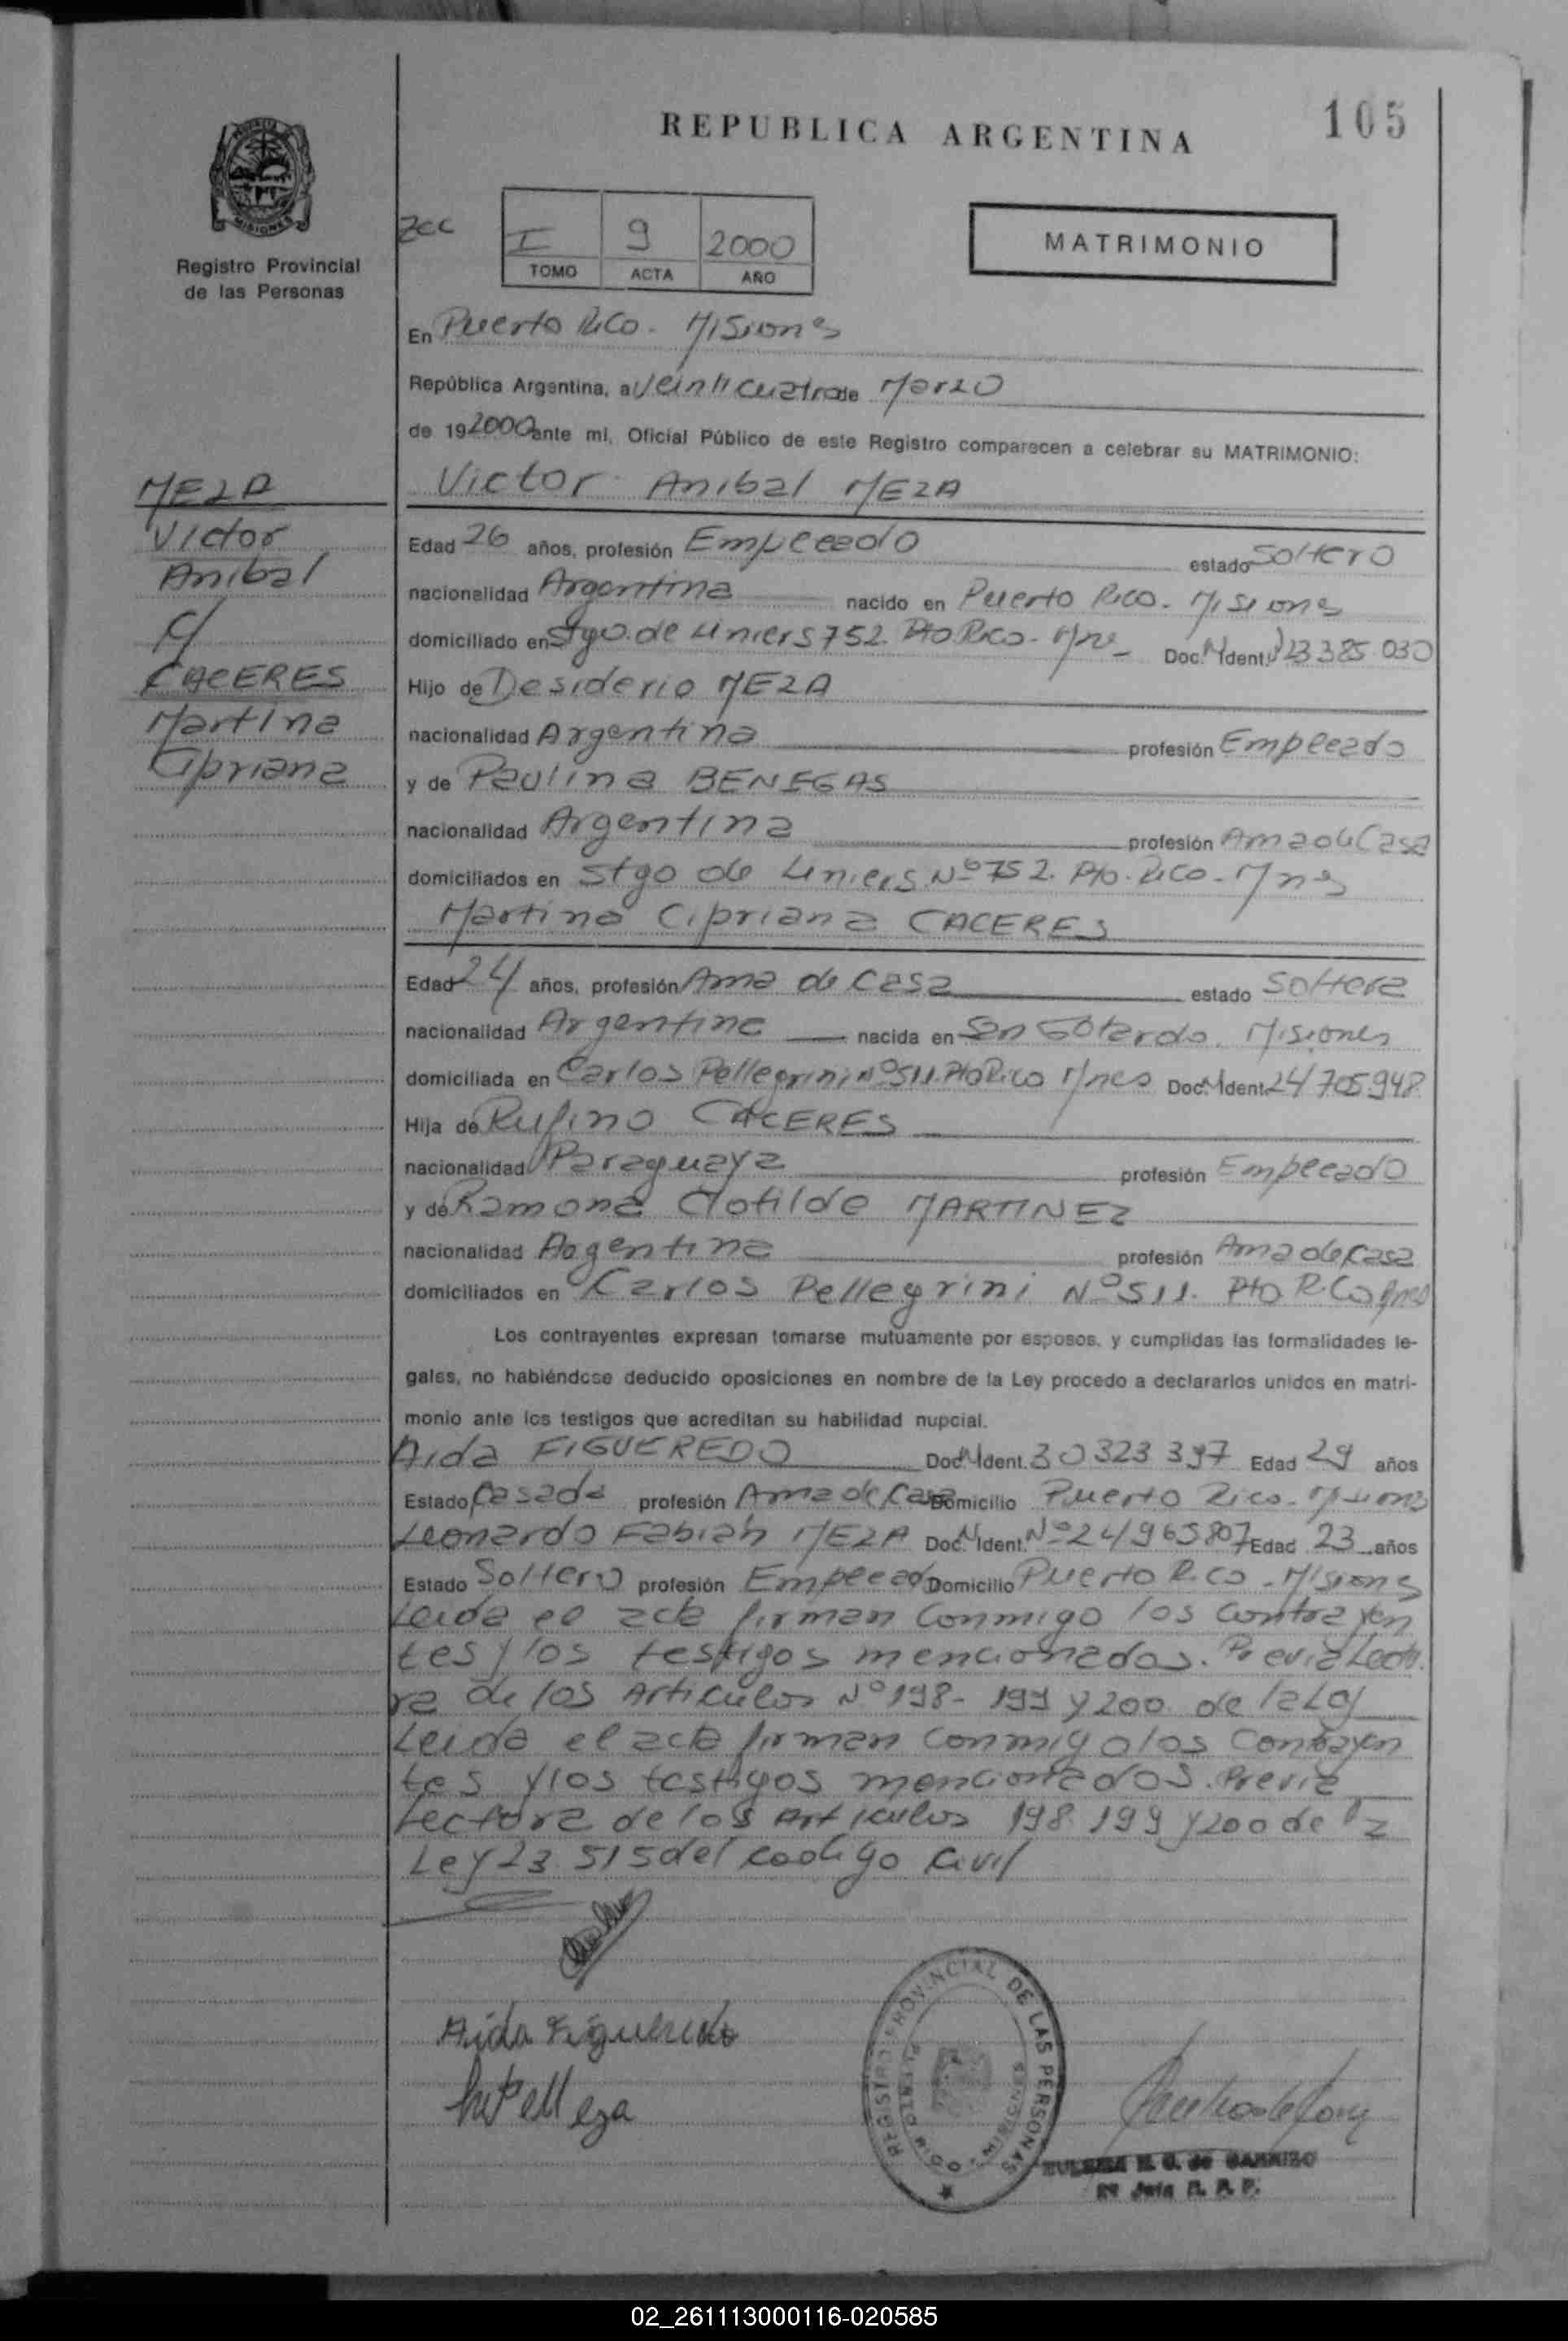 REPUBLICA ARGENTINA
105
PROVINCIA DE
MISIONES
Registro Provincial
de las Personas
I 9 2000
TOMO ACTA AÑO
MATRIMONIO
En Puerto Rico - Misiones
República Argentina, a Veinticuatro de Marzo
de 19 2000 ante mí, Oficial Público de este Registro comparecen a celebrar su MATRIMONIO:
MEZA
Victor
Anibal
c/
CACERES
Martina
Cipriana
Victor Anibal MEZA
Edad 26 años, profesión Empleado estado Soltero
nacionalidad Argentina nacido en Puerto Rico - Misiones
domiciliado en Stgo. de Liniers 752 Pto Rico - Mnes Doc. N Ident. 23 385 030
Hijo de Desiderio MEZA
nacionalidad Argentina profesión Empleado
y de Paulina BENEGAS
nacionalidad Argentina profesión Ama de Casa
domiciliados en Stgo de Liniers Nº 752. Pto. Rico - Mnes
Martina Cipriana CACERES
Edad 24 años, profesión Ama de Casa estado Soltera
nacionalidad Argentina nacida en San Gotardo. Misiones
domiciliada en Carlos Pellegrini Nº 511. Pto Rico Mnes Doc. N Ident. 24 705 948
Hija de Rufino CACERES
nacionalidad Paraguaya profesión Empleado
y de Ramona Clotilde MARTINEZ
nacionalidad Argentina profesión Ama de Casa
domiciliados en Carlos Pellegrini Nº 511. Pto Rico Mnes
Los contrayentes expresan tomarse mutuamente por esposos, y cumplidas las formalidades le-
gales, no habiéndose deducido oposiciones en nombre de la Ley procedo a declararlos unidos en matri-
monio ante los testigos que acreditan su habilidad nupcial.
Aida FIGUEREDO Doc. N Ident. 30 323 397 Edad 29 años
Estado Casada profesión Ama de Casa Domicilio Puerto Rico - Misiones
Leonardo Fabián MEZA Doc. N Ident. Nº 24 965 807 Edad 23 años
Estado Soltero profesión Empleado Domicilio Puerto Rico - Misiones
Leida el acta firman conmigo los contrayen
tes y los testigos mencionados. Previa Lectu
ra de los Articulos Nº 198 - 199 y 200 de la Ley
Leida el acta firman conmigo los contrayen
tes y los testigos mencionados. Previa
Lectura de los Articulos 198 199 y 200 de la
Ley 23 515 del codigo Civil
Aida Figueredo
REGISTRO PROVINCIAL DE LAS PERSONAS
PUERTO RICO - MISIONES
2º Jefa R. P. P.
02_261113000116-020585